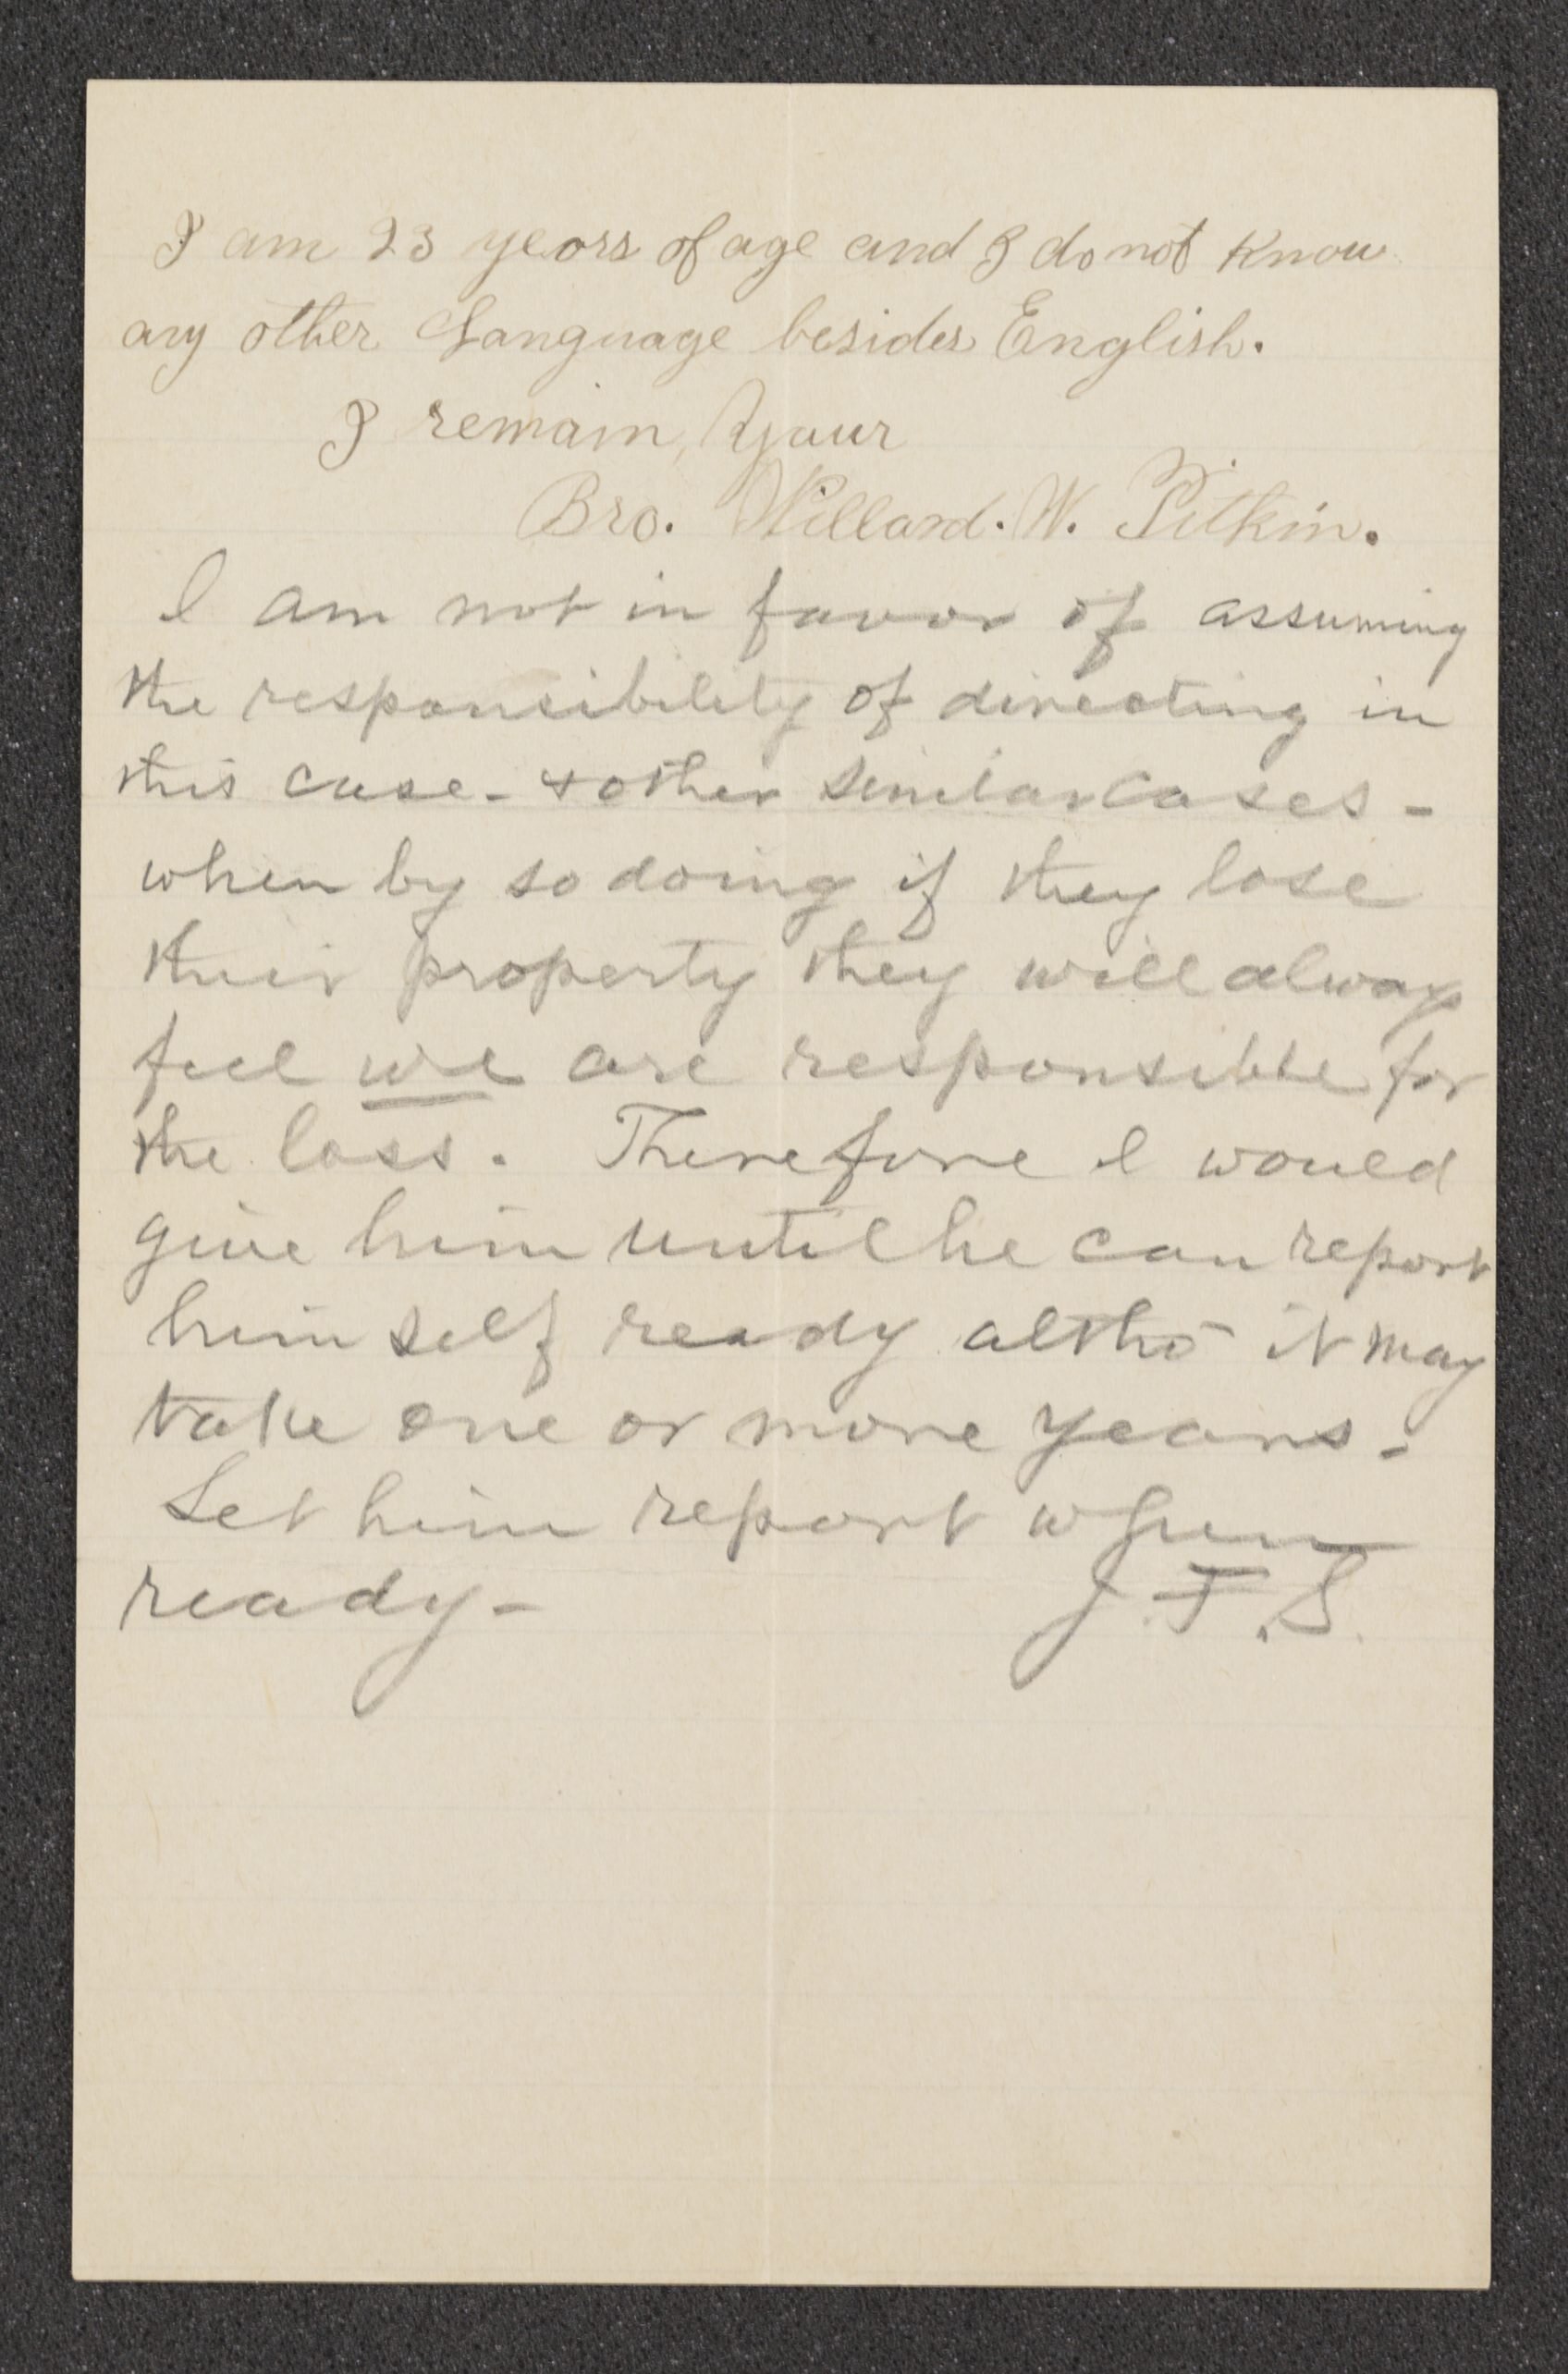 I am 23 years of age and I do not Know
any other Language besides English.
I remain, Your
Bro. Willard. W. Pitkin.
I am not in favor of assuming
the responsibility of directing in
this case - & other similar cases -
when by so doing if they lose
their property they will always
feel we are responsible for
the loss. Therefore I would
give him until he can report
himself ready altho it may
take one or more years -
Let him report when
ready - J. F. S.